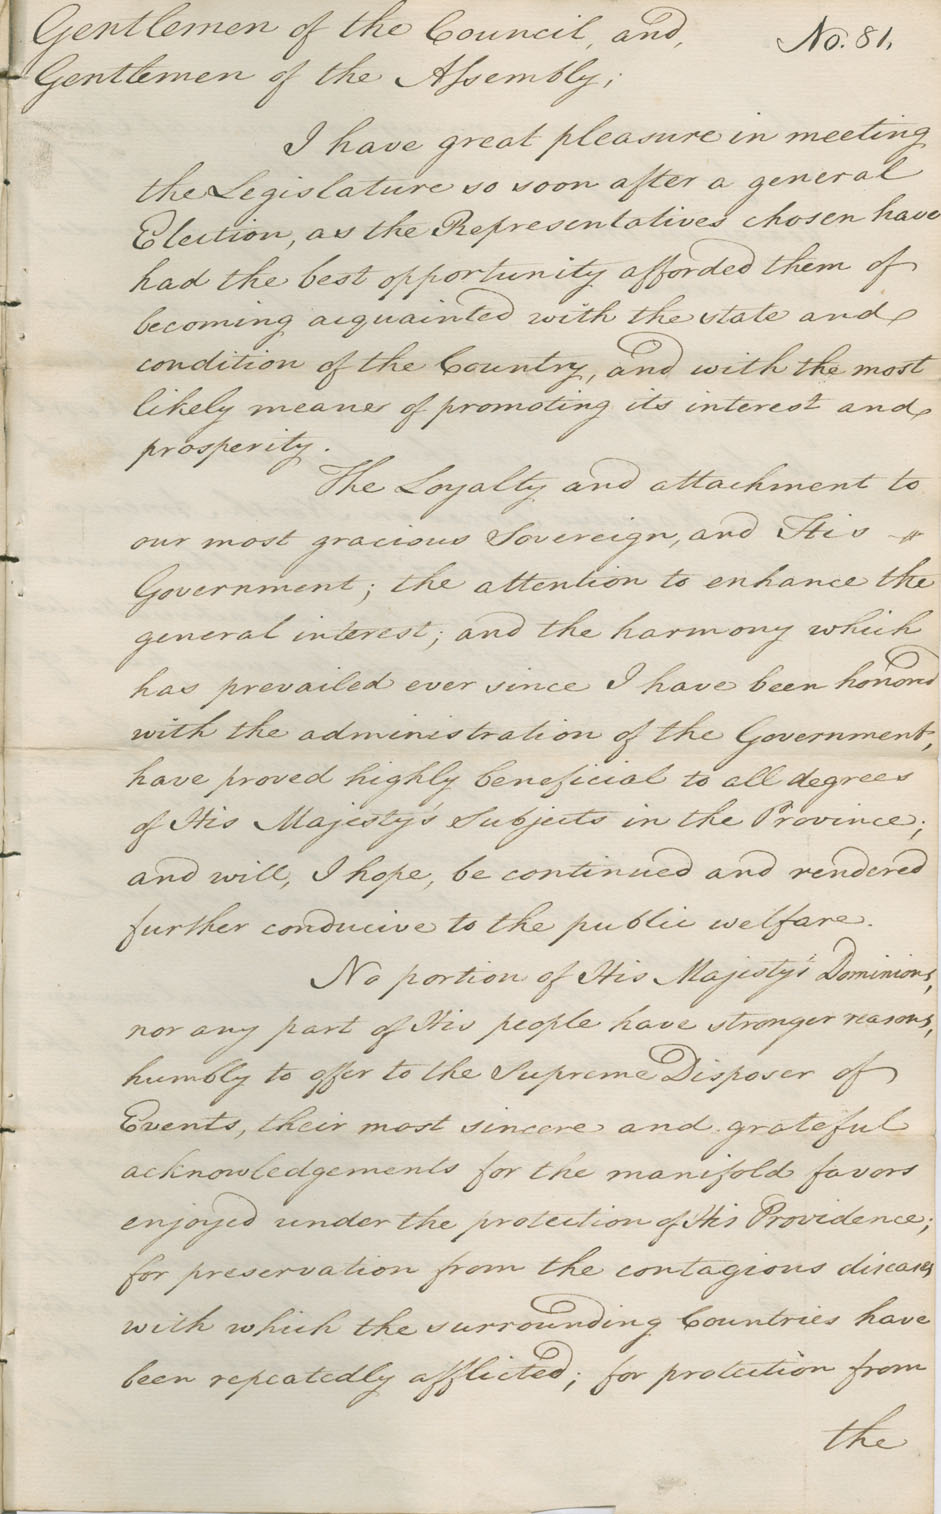 Gentlemen of the Council, and, No. 81,
Gentlemen of the Assembly;
I have great pleasure in meeting
the Legislature so soon after a general
Election, as the Representatives chosen have
had the best opportunity afforded them of
becoming acquainted with the state and
condition of the Country, and with the most
likely means of promoting its interest and
prosperity.
The Loyalty and attachment to
our most gracious Sovereign, and His
Government; the attention to enhance the
general interest; and the harmony which
has prevailed ever since I have been honored
with the administration of the Government,
have proved highly beneficial to all degrees
of His Majesty's Subjects in the Province;
and will, I hope, be continued and rendered
further conducive to the public welfare.
No portion of His Majesty's Dominions,
nor any part of His people have stronger reasons,
humbly to offer to the Supreme Disposer of
Events, their most sincere and grateful
acknowledgements for the manifold favors
enjoyed under the protection of His Providence;
for preservation from the contagious diseases
with which the surrounding Countries have
been repeatedly afflicted; for protection from
the